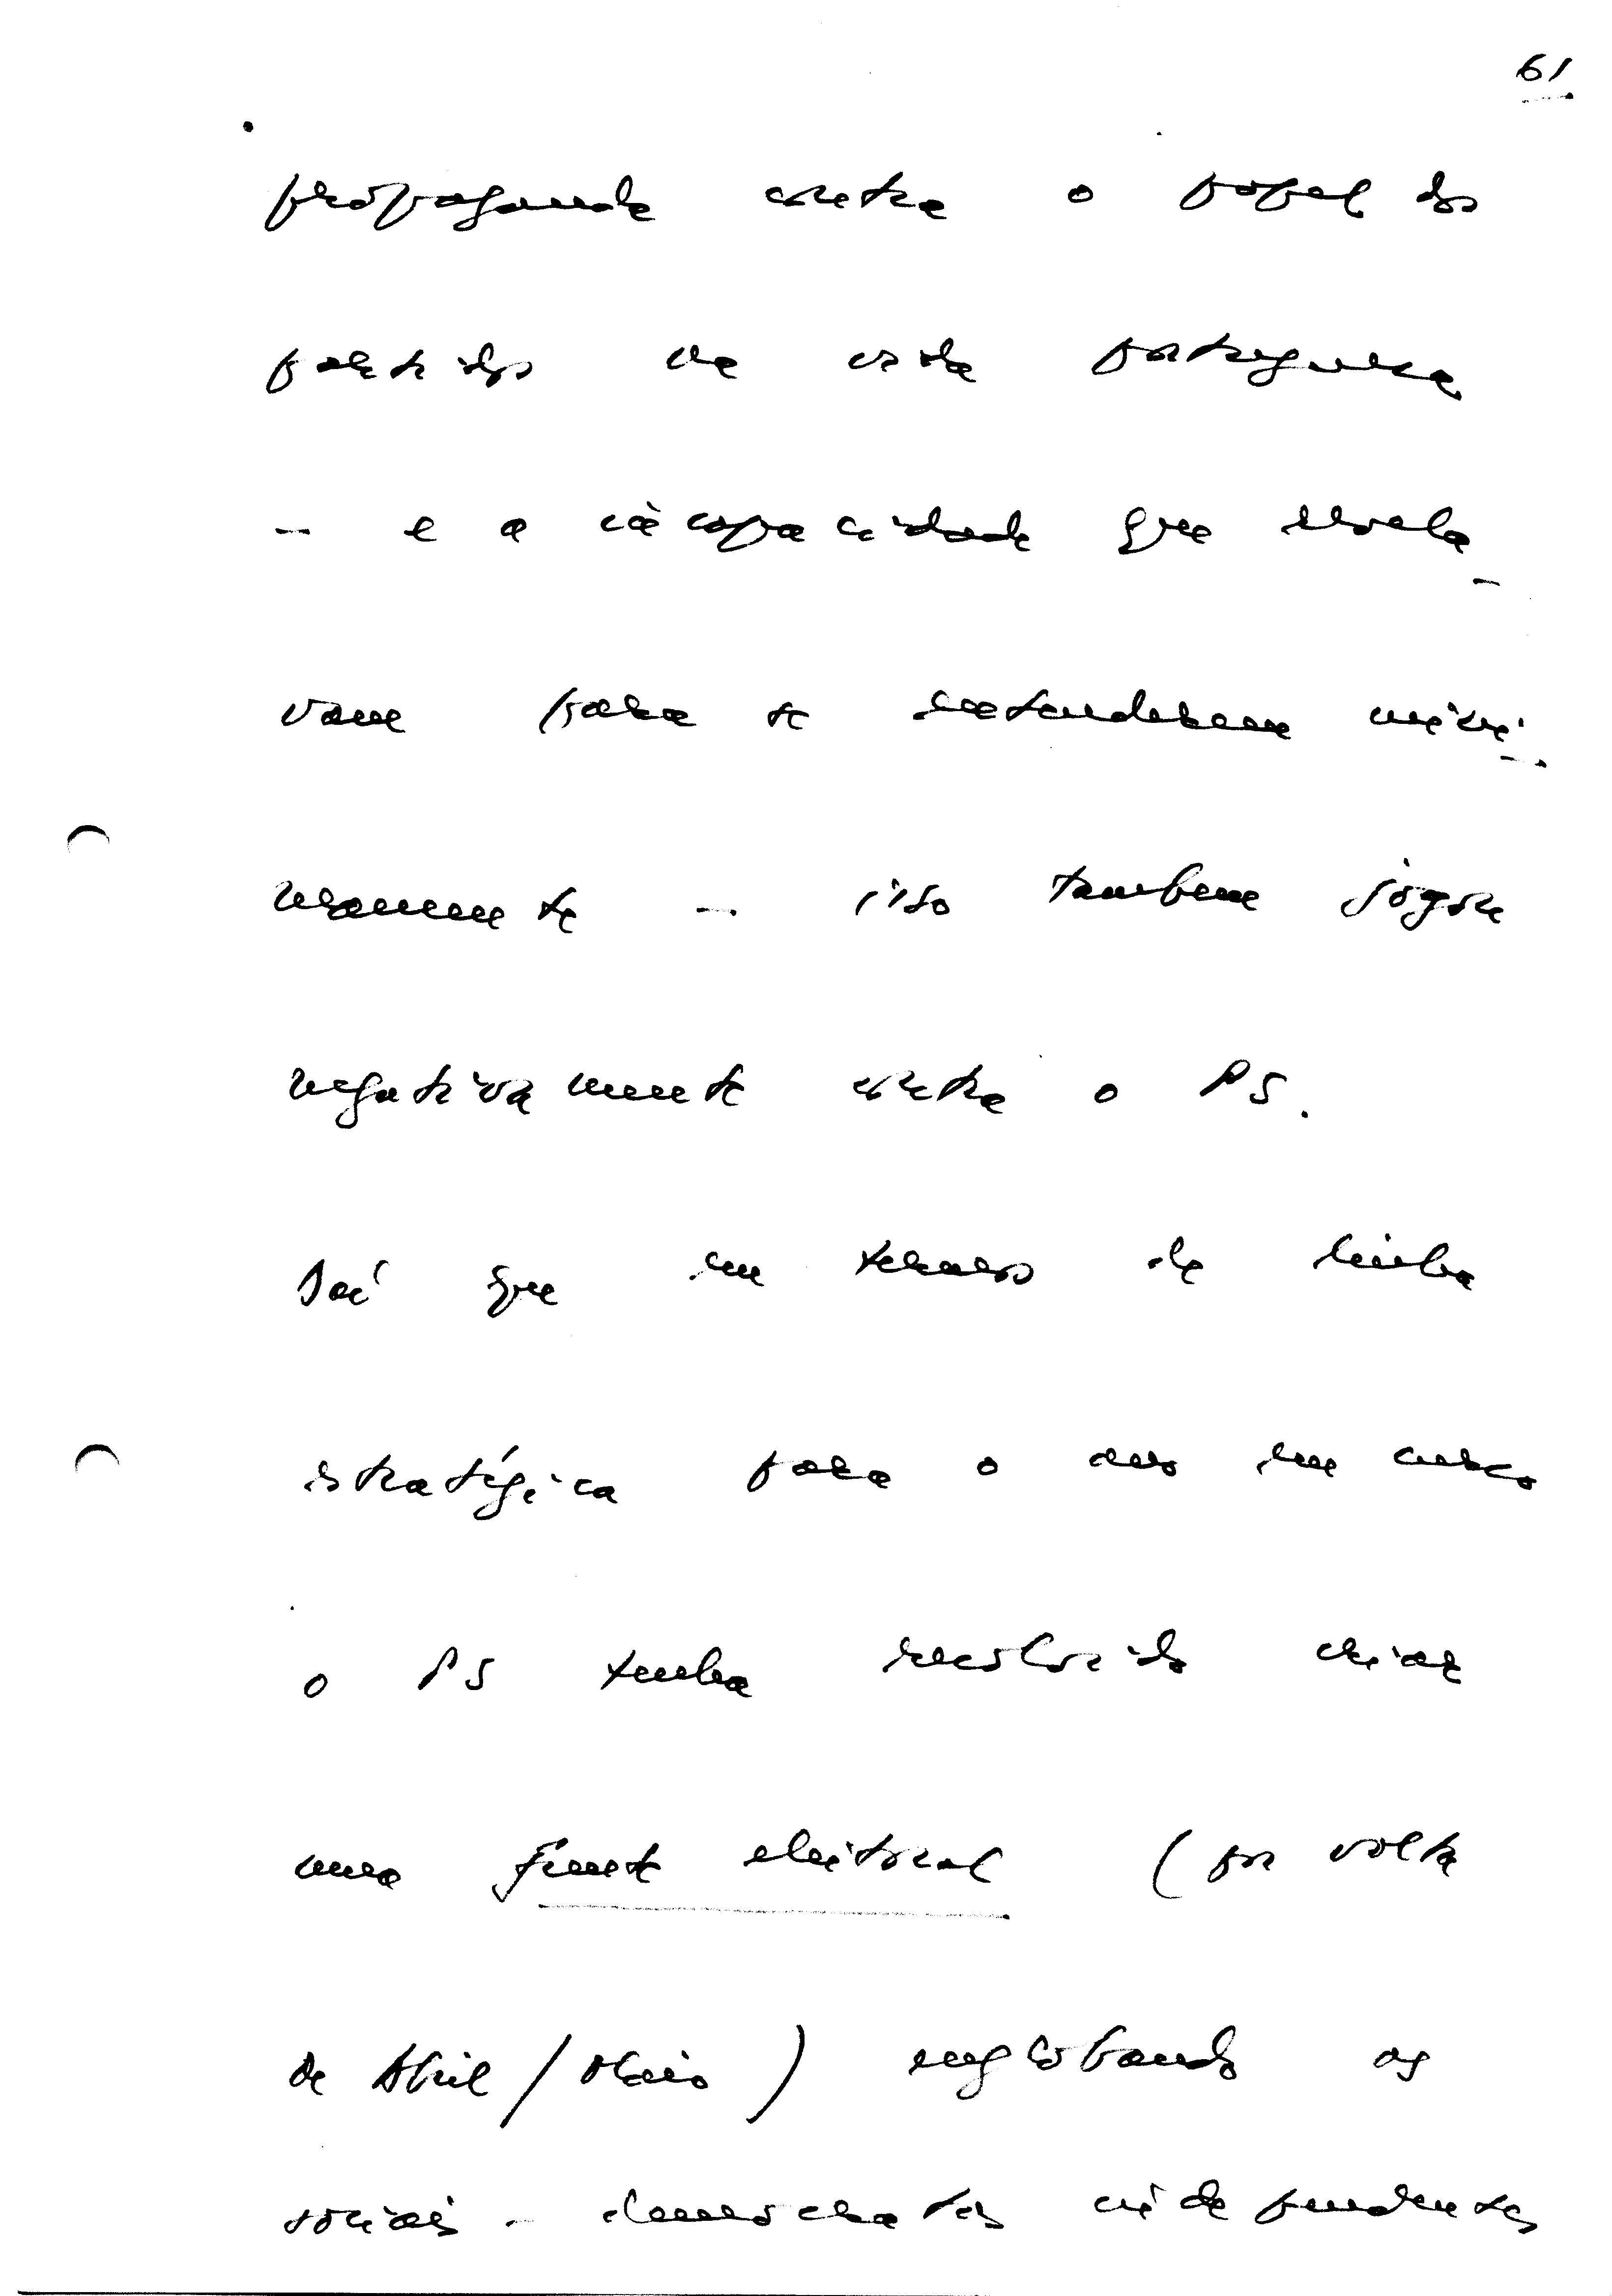 61
propaganda contra o papel dos
partidos na vida portuguesa
- e a incapacidade que revela-
vam para se entenderem míni-
mamente - isso também jogou
negativamente contra o PS.
Daí que em termos de linha
estratégica para o ano em curso
o PS tenha resolvido criar
uma frente eleitoral (por volta
de Abril/Maio) englobando os
sociais-democratas independentes